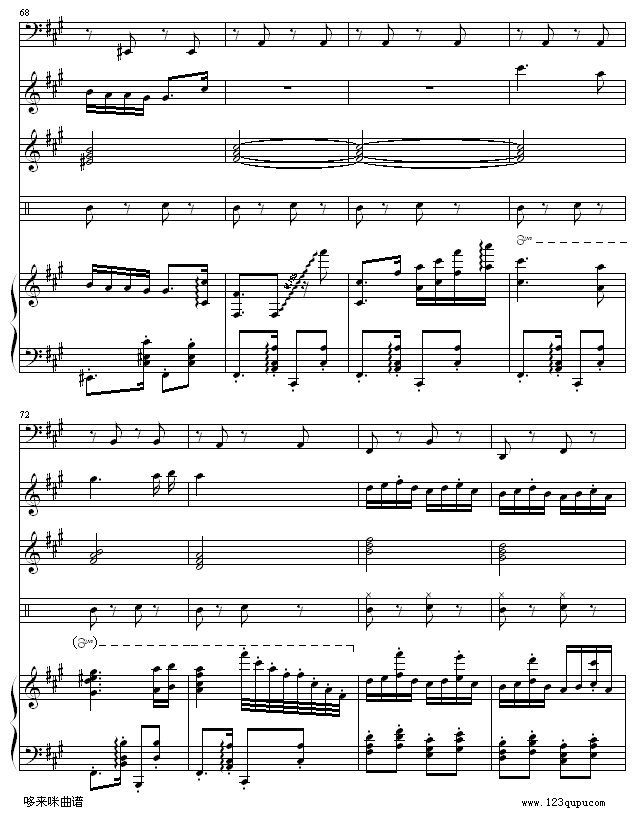 68
8va
72
(8va)
哆来咪曲谱
www.123qupu.com